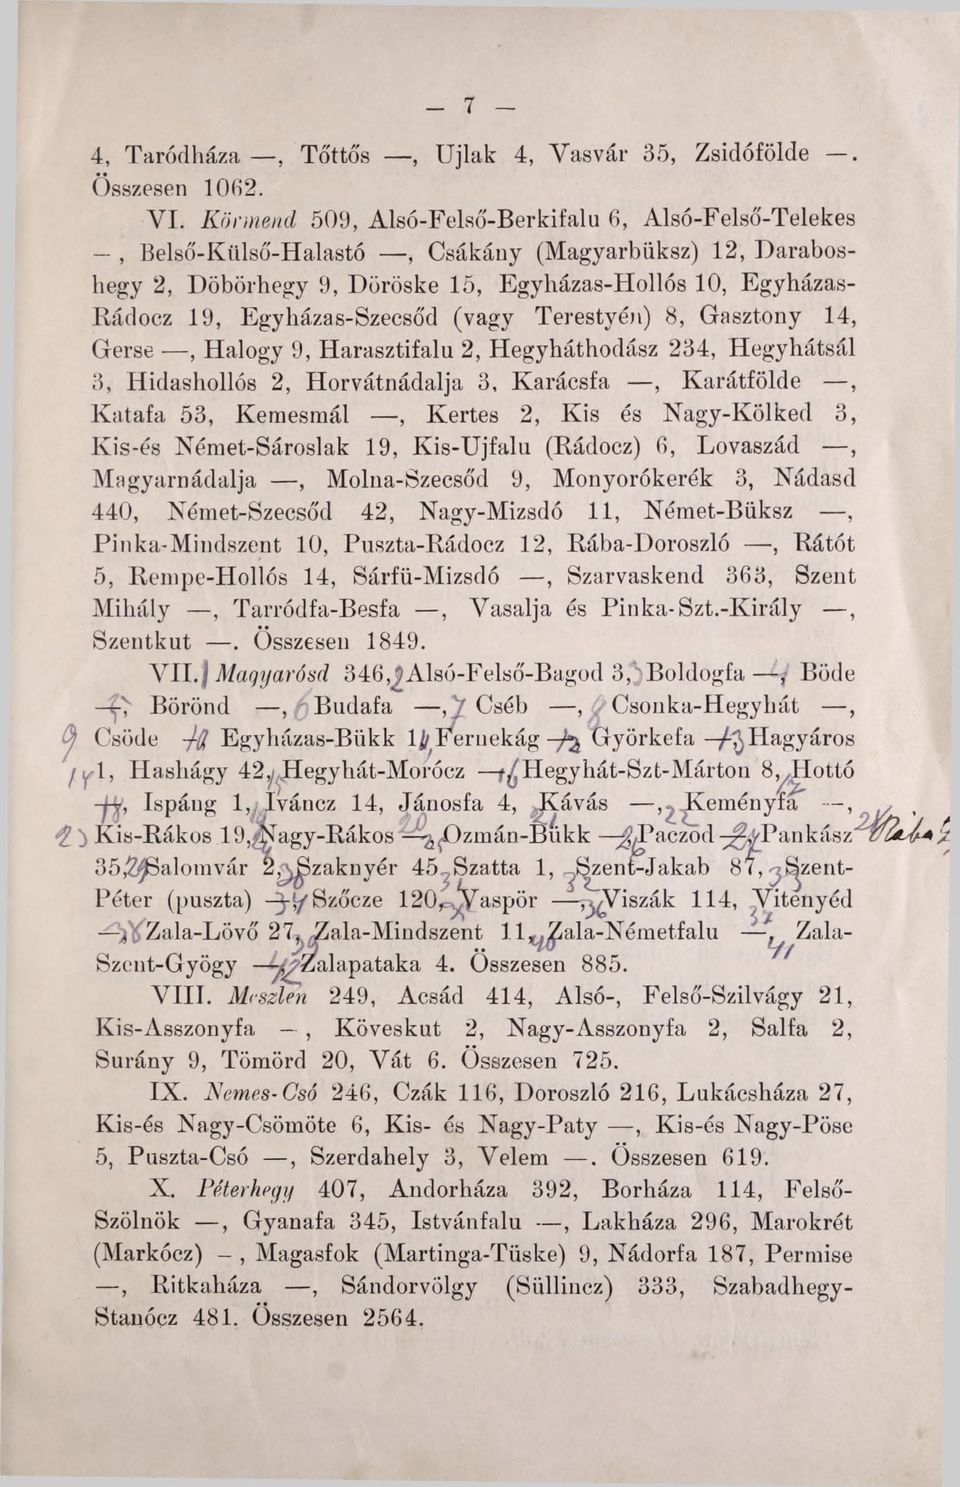 — 7 —
4, Taródháza —, Tőttős —, Ujlak 4, Vasvár 35, Zsidófölde —.
Összesen 1062.
VI. Körmend 509, Alsó-Felső-Berkifalu 6, Alsó-Felső-Telekes
—, Belső-Külső-Halastó —, Csákány (Magyarbüksz) 12, Darabos-
hegy 2, Döbörhegy 9, Döröske 15, Egyházas-Hollós 10, Egyházas-
Rádocz 19, Egyházas-Szecsőd (vagy Terestyén) 8, Gasztony 14,
Gerse —, Halogy 9, Harasztifalu 2, Hegyháthodász 234, Hegyhátsál
3, Hidashollós 2, Horvátnádalja 3, Karácsfa —, Karátfölde —,
Katafa 53, Kemesmál —, Kertes 2, Kis és Nagy-Kölked 3,
Kis-és Német-Sároslak 19, Kis-Ujfalu (Rádocz) 6, Lovaszád —,
Magyarnádalja —, Molna-Szecsőd 9, Monyorókerék 3, Nádasd
440, Német-Szecsőd 42, Nagy-Mizsdó 11, Német-Büksz —,
Pinka-Mindszent 10, Puszta-Rádocz 12, Rába-Doroszló —, Rátót
5, Rempe-Hollós 14, Sárfü-Mizsdó —, Szarvaskend 363, Szent
Mihály —, Tarródfa-Besfa —, Vasalja és Pinka-Szt.-Király —,
Szentkut —. Összesen 1849.
VII. Magyarósd 346, 2 Alsó-Felső-Bagod 3, 3 Boldogfa —, 4 Böde
—, Börönd —, 6 Budafa —, 7 Cséb —, 8 Csonka-Hegyhát —,
9 Csöde — 10 Egyházas-Bükk 1, Fernekág —, 12 Györkefa — 13 Hagyáros
14 1, Hashágy 42, Hegyhát-Morócz —, Hegyhát-Szt-Márton 8, Hottó
—, Ispáng 1, Iváncz 14, Jánosfa 4, Kávás —, Keményfa —,
23 Kis-Rákos 19, Nagy-Rákos —, Ozmán-Bükk —, Paczod —, Pankász 28 Rába
35, Salomvár 2, Szaknyér 45, Szatta 1, Szent-Jakab 87, Szent-
Péter (puszta) —, 34 Szőcze 120, Vaspör —, Viszák 114, Vitenyéd
—, Zala-Lövő 27, Zala-Mindszent 11, Zala-Németfalu —, Zala-
Szent-Gyögy —, Zalapataka 4. Összesen 885.
VIII. Meszlen 249, Acsád 414, Alsó-, Felső-Szilvágy 21,
Kis-Asszonyfa —, Köveskut 2, Nagy-Asszonyfa 2, Salfa 2,
Surány 9, Tömörd 20, Vát 6. Összesen 725.
IX. Nemes-Csó 246, Czák 116, Doroszló 216, Lukácsháza 27,
Kis-és Nagy-Csömöte 6, Kis- és Nagy-Paty —, Kis-és Nagy-Pöse
5, Puszta-Csó —, Szerdahely 3, Velem —. Összesen 619.
X. Péterhegy 407, Andorháza 392, Borháza 114, Felső-
Szölnök —, Gyanafa 345, Istvánfalu —, Lakháza 296, Marokrét
(Markócz) —, Magasfok (Martinga-Tüske) 9, Nádorfa 187, Permise
—, Ritkaháza —, Sándorvölgy (Süllincz) 333, Szabadhegy-
Stanócz 481. Összesen 2564.